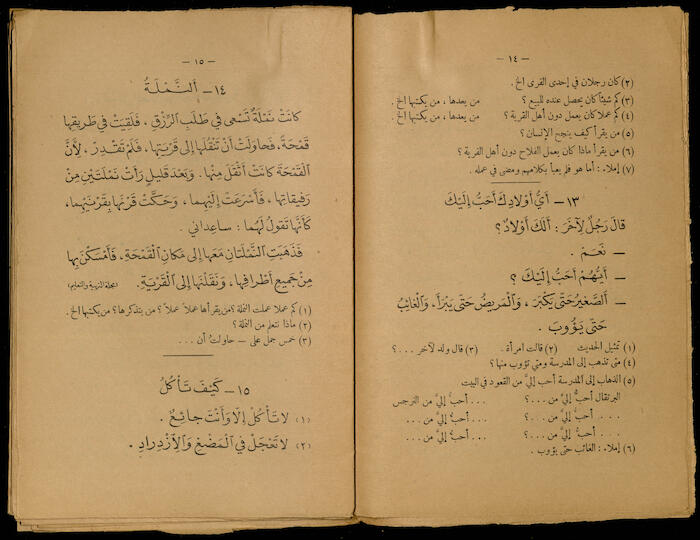 — ١٤ —
(٢) كان رجلان في إحدى القرى الخ.
(٣) كم شيئاً كان يحصل عنده للبيع ؟ من يعدها ، من يكتبها الخ .
(٤) كم عملا كان يعمل دون أهل القرية ؟ من يعدها ، من يكتبها الخ .
(٥) من يقرأ كيف ينجح الإنسان ؟
(٦) من يقرأ ماذا كان يعمل الفلاح دون أهل القرية ؟
(٧) إملاء : أما هو فلم يعبأ بكلامهم ومضى في عمله .
١٣ — أَيُّ أَوْلادِكَ أَحَبُّ إِلَيْكَ
قَالَ رَجُلٌ لِآخَرَ : أَلَكَ أَوْلادٌ ؟
— نَعَمْ .
— أَيُّهُمْ أَحَبُّ إِلَيْكَ ؟
— أَلصَّغِيرُ حَتَّى يَكْبَرَ ، وَالْمَرِيضُ حَتَّى يَبْرَأَ ، وَالْغَائِبُ
حَتَّى يَؤُوبَ .
(١) تمثيل الحديث (٢) قالت امرأة . (٣) قال ولد لآخر ...؟
(٤) متى تذهب إلى المدرسة ومتى تؤوب منها ؟
(٥) الذهاب إلى المدرسة أحب إليَّ من القعود في البيت
البرتقال أحبُّ إليَّ من ...؟ ... أحبُّ إليَّ من النرجس
... أحبُّ إليَّ من ...؟ ... أحبُّ إليَّ من ...
... أحبُّ إليَّ من ...؟ ... أحبُّ إليَّ من ...
(٦) إملاء : الغائب حتى يؤوب .
— ١٥ —
١٤ — أَلنَّمْلَةُ
كانَتْ نَمْلَةٌ تَسْعَى في طَلَبِ الرِّزْقِ ، فَلَقِيَتْ في طَرِيقِها
قَمْحَةً ، فَحاوَلَتْ أَنْ تَنْقُلَها إِلى قَرْيَتِها ، فَلَمْ تَقْدِرْ ، لِأَنَّ
الْقَمْحَةَ كانَتْ أَثْقَلَ مِنْها . وَبَعْدَ قَلِيلٍ رَأَتْ نَمْلَتَيْنِ مِنْ
رَفِيقاتِها ، فَأَسْرَعَتْ إِلَيْهِما ، وَحَكَّتْ قَرْنَها بِقَرْنَيْهِما ،
كَأَنَّها تَقُولُ لَهُما : ساعِداني
فَذَهَبَتِ النَّمْلَتانِ مَعَها إِلى مَكانِ الْقَمْحَةِ ، فَأَمْسَكْنَ بِها
مِنْ جَمِيعِ أَطْرافِها ، وَنَقَلْنَها إِلى الْقَرْيَةِ . (مجلة التربية والتعليم)
(١) كم عملا عملت النملة ؟ من يقرأها عملاً عملاً ؟ من يتذكرها ؟ من يكتبها الخ .
(٢) ماذا نتعلم من النملة ؟
(٣) خمس جمل على — حاولتُ أن ...
١٥ — كَيْفَ تَأْكُلُ
(١) لا تَأْكُلْ إِلّا وَأَنْتَ جائِعٌ .
(٢) لا تَعْجَلْ في الْمَضْغِ وَالْاِزْدِرادِ .